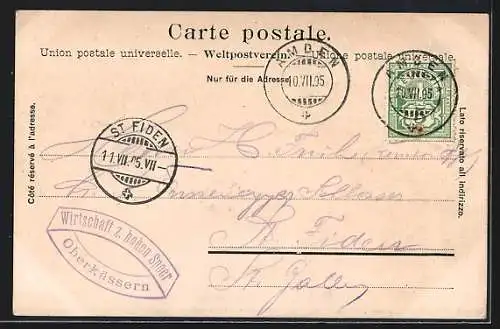 Carte postale.
Union postale universelle. — Weltpostverein. — Unione postale universale.
Nur für die Adresse.
AMDEN
10.VII.05
AMDEN
10.VII.05
ST FIDEN
11.VII.05.VII
Côté réservé à l'adresse.
Lato riservato all' indirizzo.
Herrn H.
St. Fiden
St. Gallen
Wirtschaft z. hohen Speer
Oberkäsern